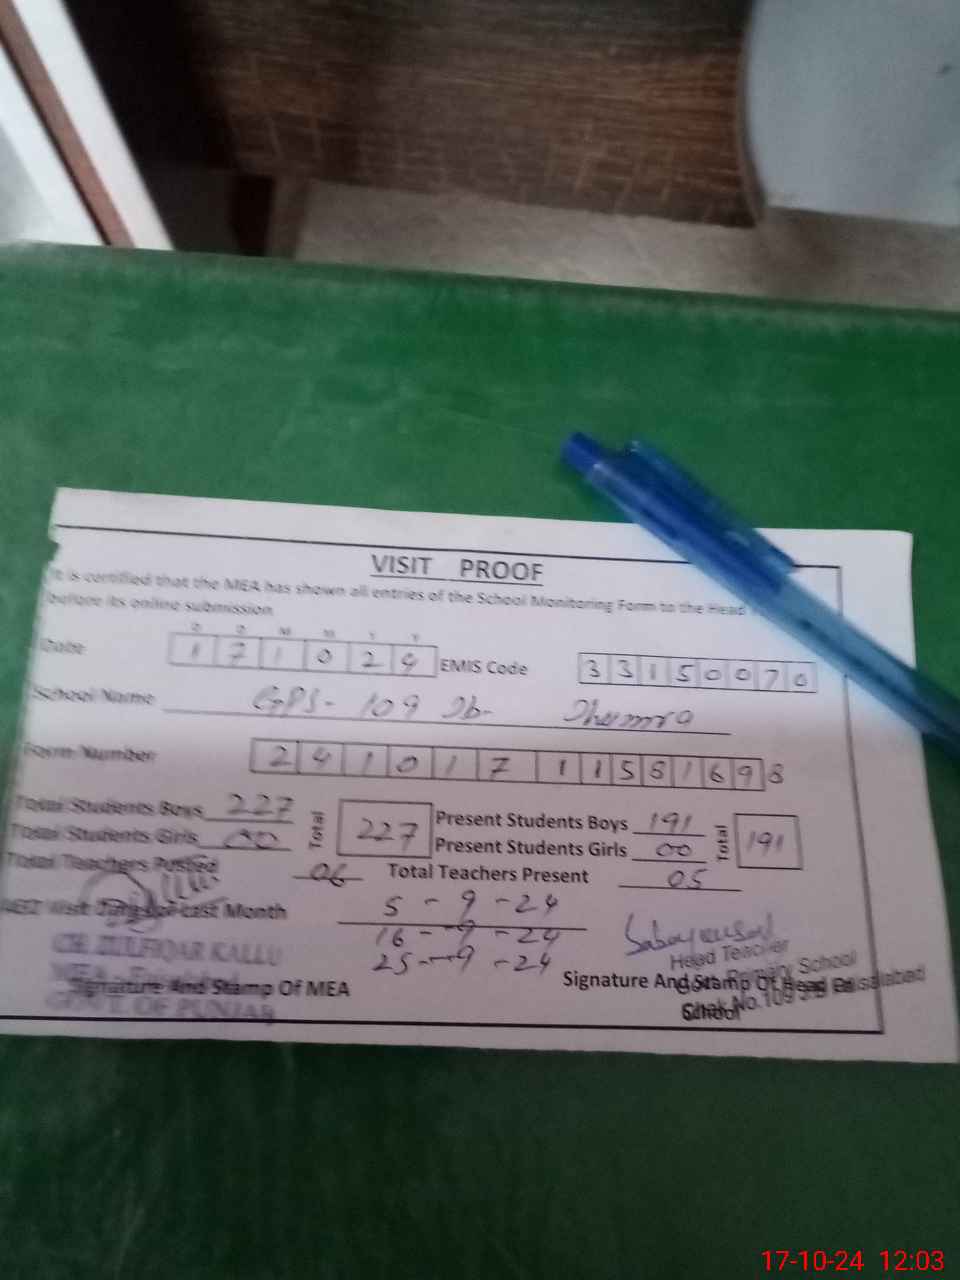 VISIT PROOF
It is certified that the MEA has shown all entries of the School Monitoring Form to the Head
before its online submission
D D M M Y Y
Date 1 7 1 0 2 4 EMIS Code 3 3 1 5 0 0 7 0
School Name GPS- 109 Jb-
Form Number 2 4 1 0 1 7 1 1 5 8 1 6 9 8
Total Students Boys 227 Total 227 Present Students Boys 191 Total 191
Total Students Girls 00 Present Students Girls 00
Total Teachers Posted 06 Total Teachers Present 05
Visit Last Month 5 - 9 - 24
16 - 9 - 24
25 - 9 - 24
CH. ZULFIQAR KALLU
MEA - Faisalabad
GOVT. OF PUNJAB
Signature And Stamp Of MEA
Head Teacher
Govt. Primary School
Chak No.109 J.B Faisalabad
Signature And Stamp Of Head Of
School
17-10-24 12:03